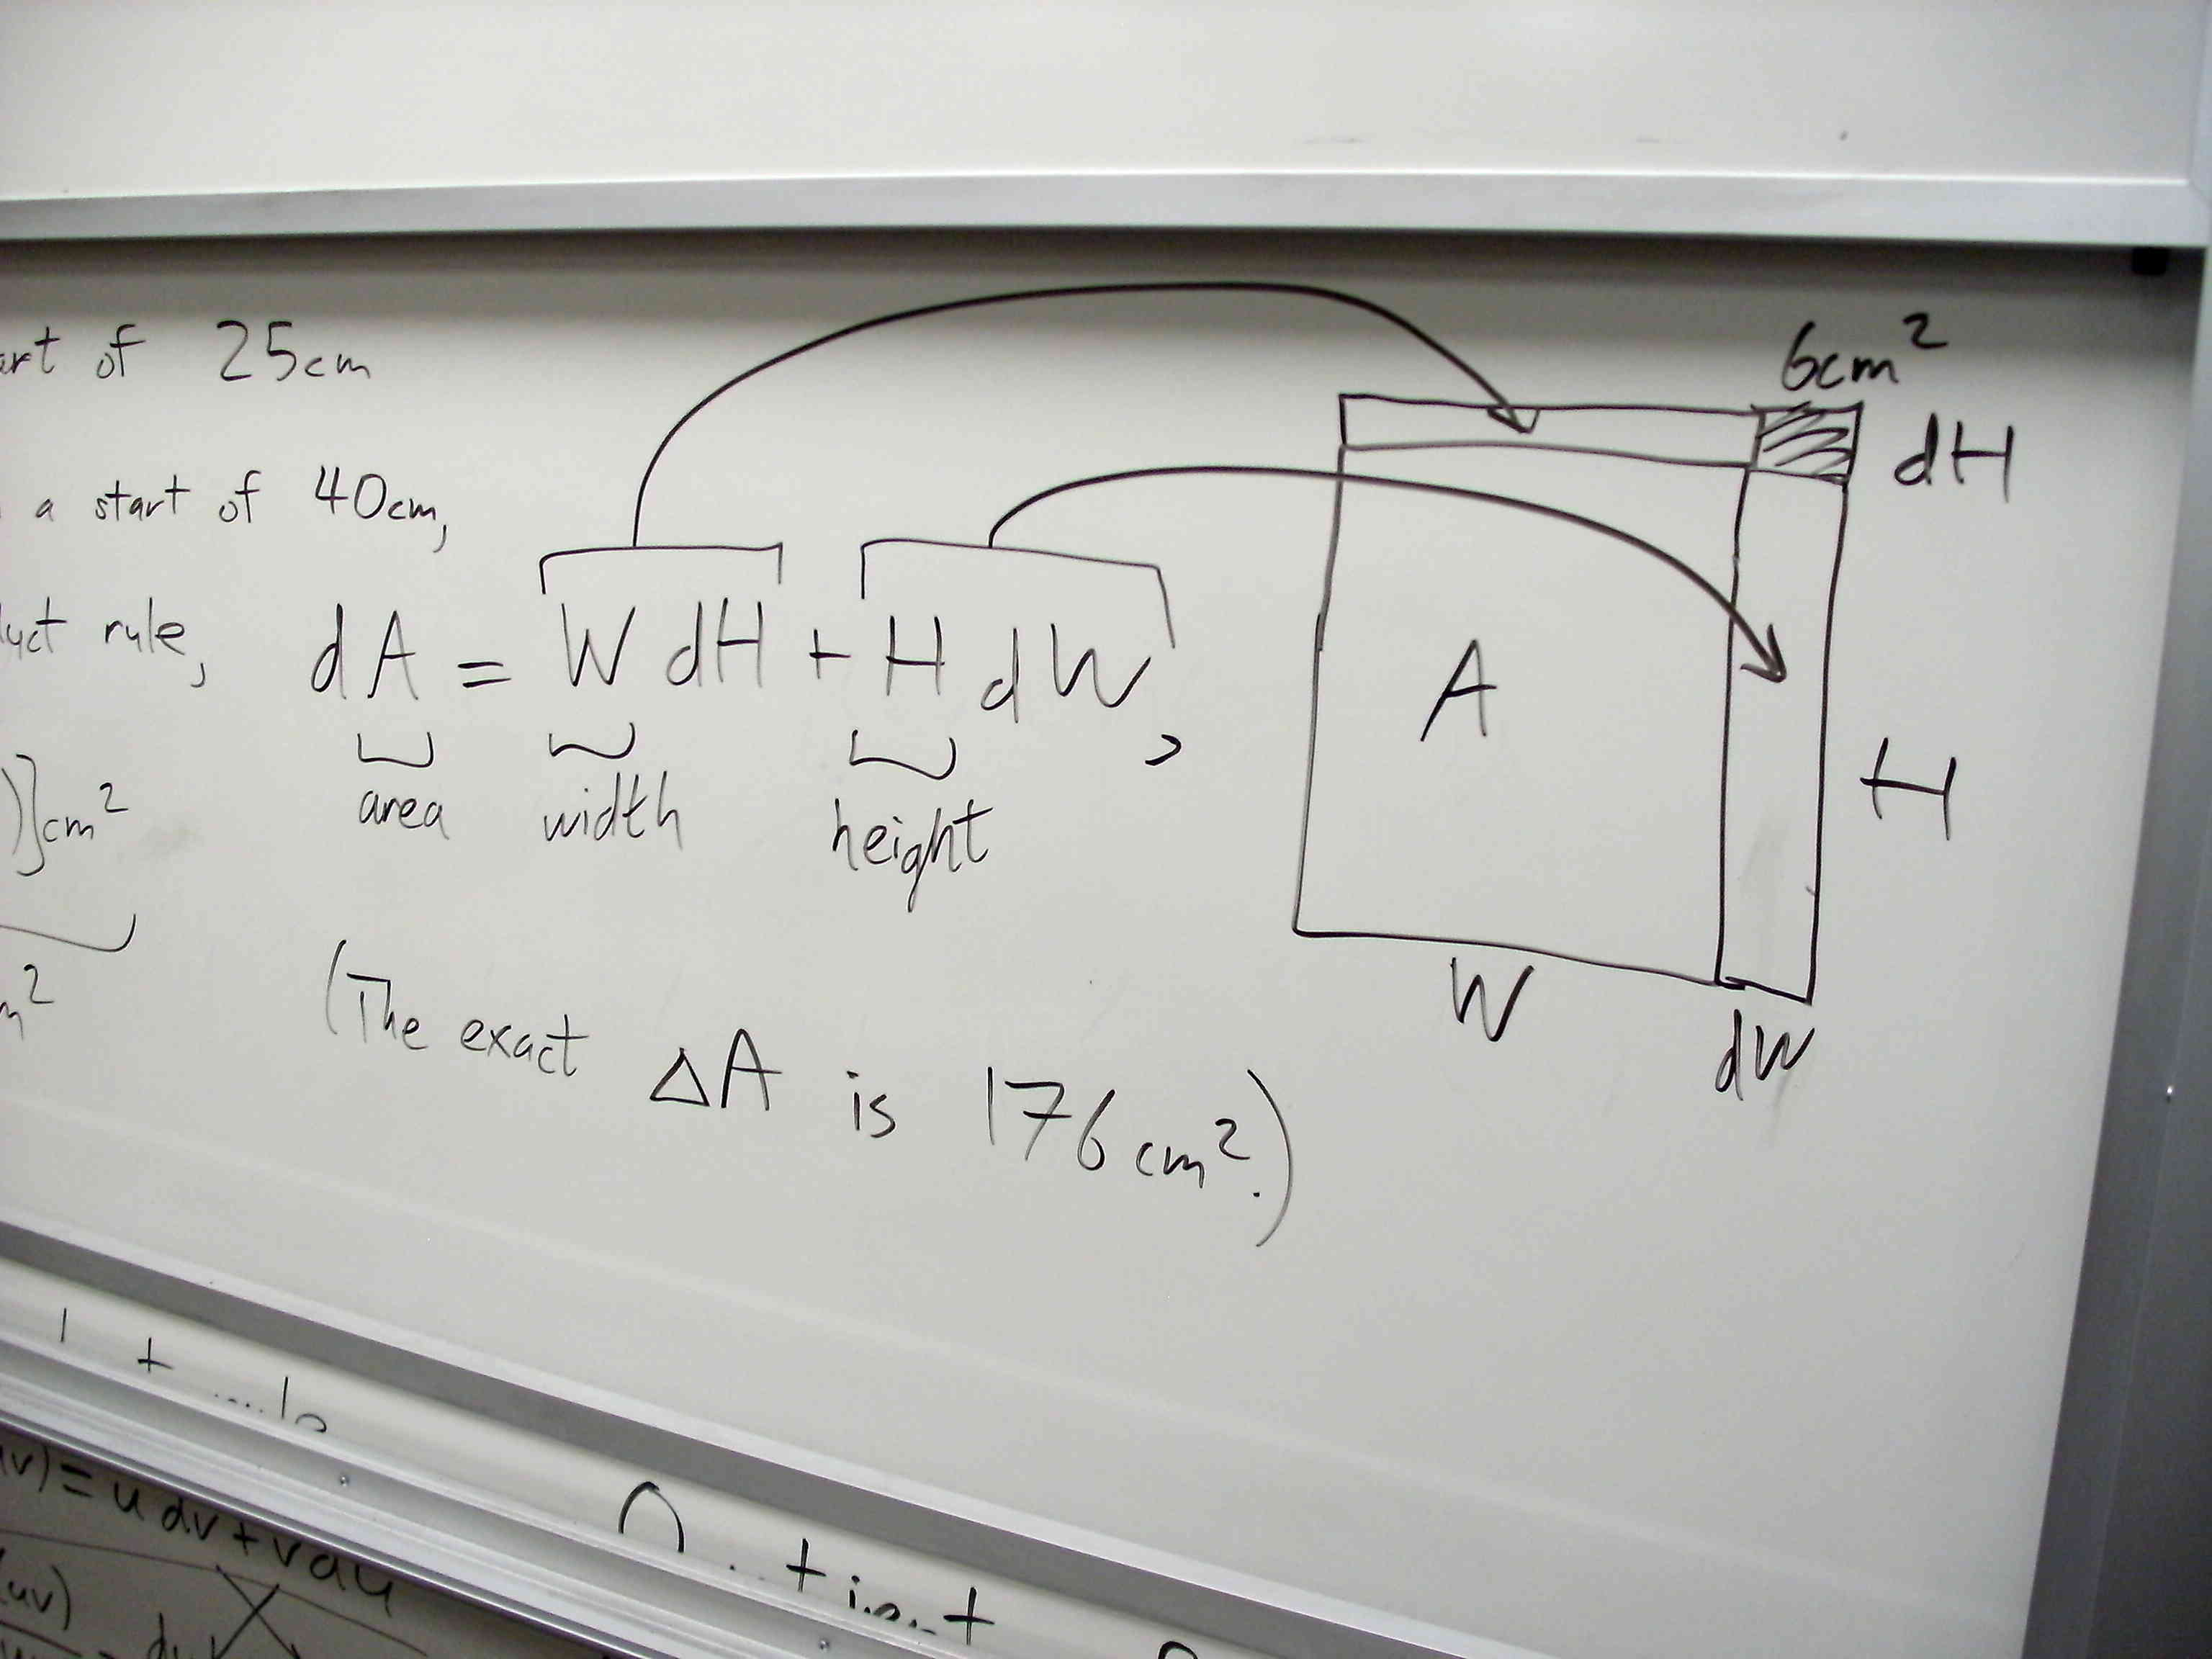 of 25cm
a start of 40cm,
rule, dA = W dH + H dW,
area width height
)]cm²
(The exact ΔA is 176cm².)
6cm²
dH
A
H
W
dW
= u dv + v du
(uv)